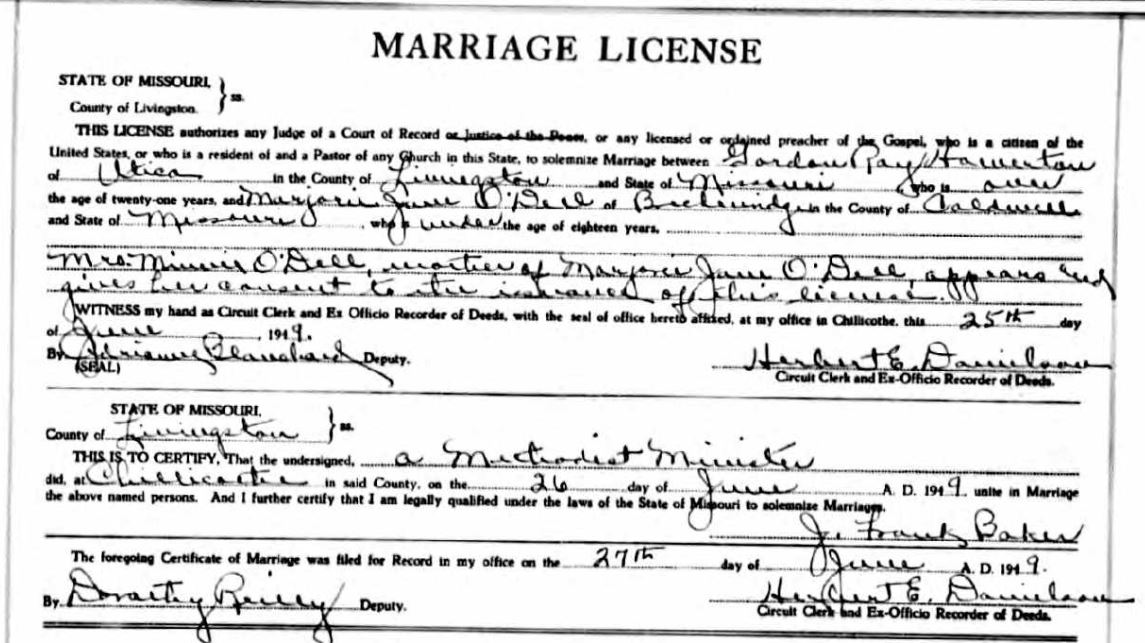 MARRIAGE LICENSE
STATE OF MISSOURI, } ss.
County of Livingston.
THIS LICENSE authorizes any Judge of a Court of Record or Justice of the Peace, or any licensed or ordained preacher of the Gospel, who is a citizen of the
United States, or who is a resident of and a Pastor of any Church in this State, to solemnize Marriage between Gordon Ray Howerton
of Utica in the County of Livingston and State of Missouri, who is over
the age of twenty-one years, and Marjorie Jane O'Dell of Breckenridge in the County of Caldwell
and State of Missouri, who is under the age of eighteen years,
Mrs. Minnie O'Dell, mother of Marjorie Jane O'Dell, appears and
gives her consent to the issuance of this license.
WITNESS my hand as Circuit Clerk and Ex Officio Recorder of Deeds, with the seal of office hereto affixed, at my office in Chillicothe, this 25th day
of June, 1949.
By Adrianne Blanchard Deputy. Herbert E. Danielson
(SEAL) Circuit Clerk and Ex-Officio Recorder of Deeds.
STATE OF MISSOURI, } ss.
County of Livingston
THIS IS TO CERTIFY, That the undersigned, a Methodist Minister
did, at Chillicothe in said County, on the 26 day of June A. D. 1949. unite in Marriage
the above named persons. And I further certify that I am legally qualified under the laws of the State of Missouri to solemnize Marriages.
J. Frank Baker
The foregoing Certificate of Marriage was filed for Record in my office on the 27th day of June A. D. 1949.
By Dorothy Reilly Deputy. Herbert E. Danielson
Circuit Clerk and Ex-Officio Recorder of Deeds.